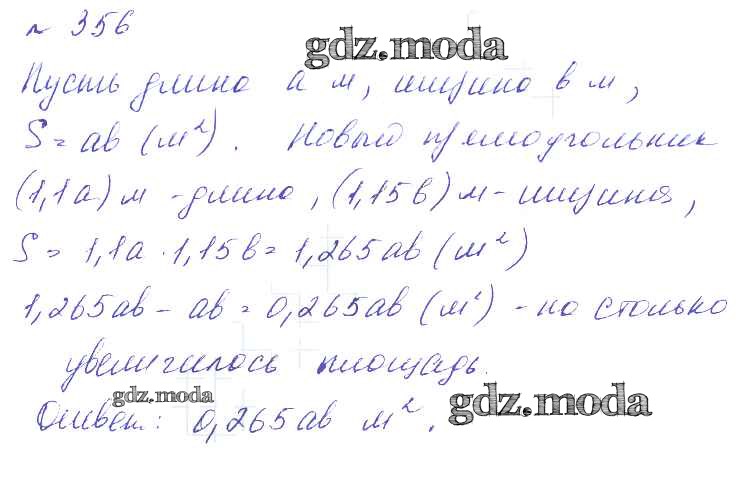 № 356
gdz.moda
Пусть длина а м, ширина в м,
S = ab (м²). Новый прямоугольник
(1,1a) м - длина, (1,15в) м - ширина,
S = 1,1a · 1,15в = 1,265ав (м²)
1,265ab - ab = 0,265ab (м²) - на столько
увеличилось площадь.
gdz.moda
Ответ: 0,265ab м².
gdz.moda